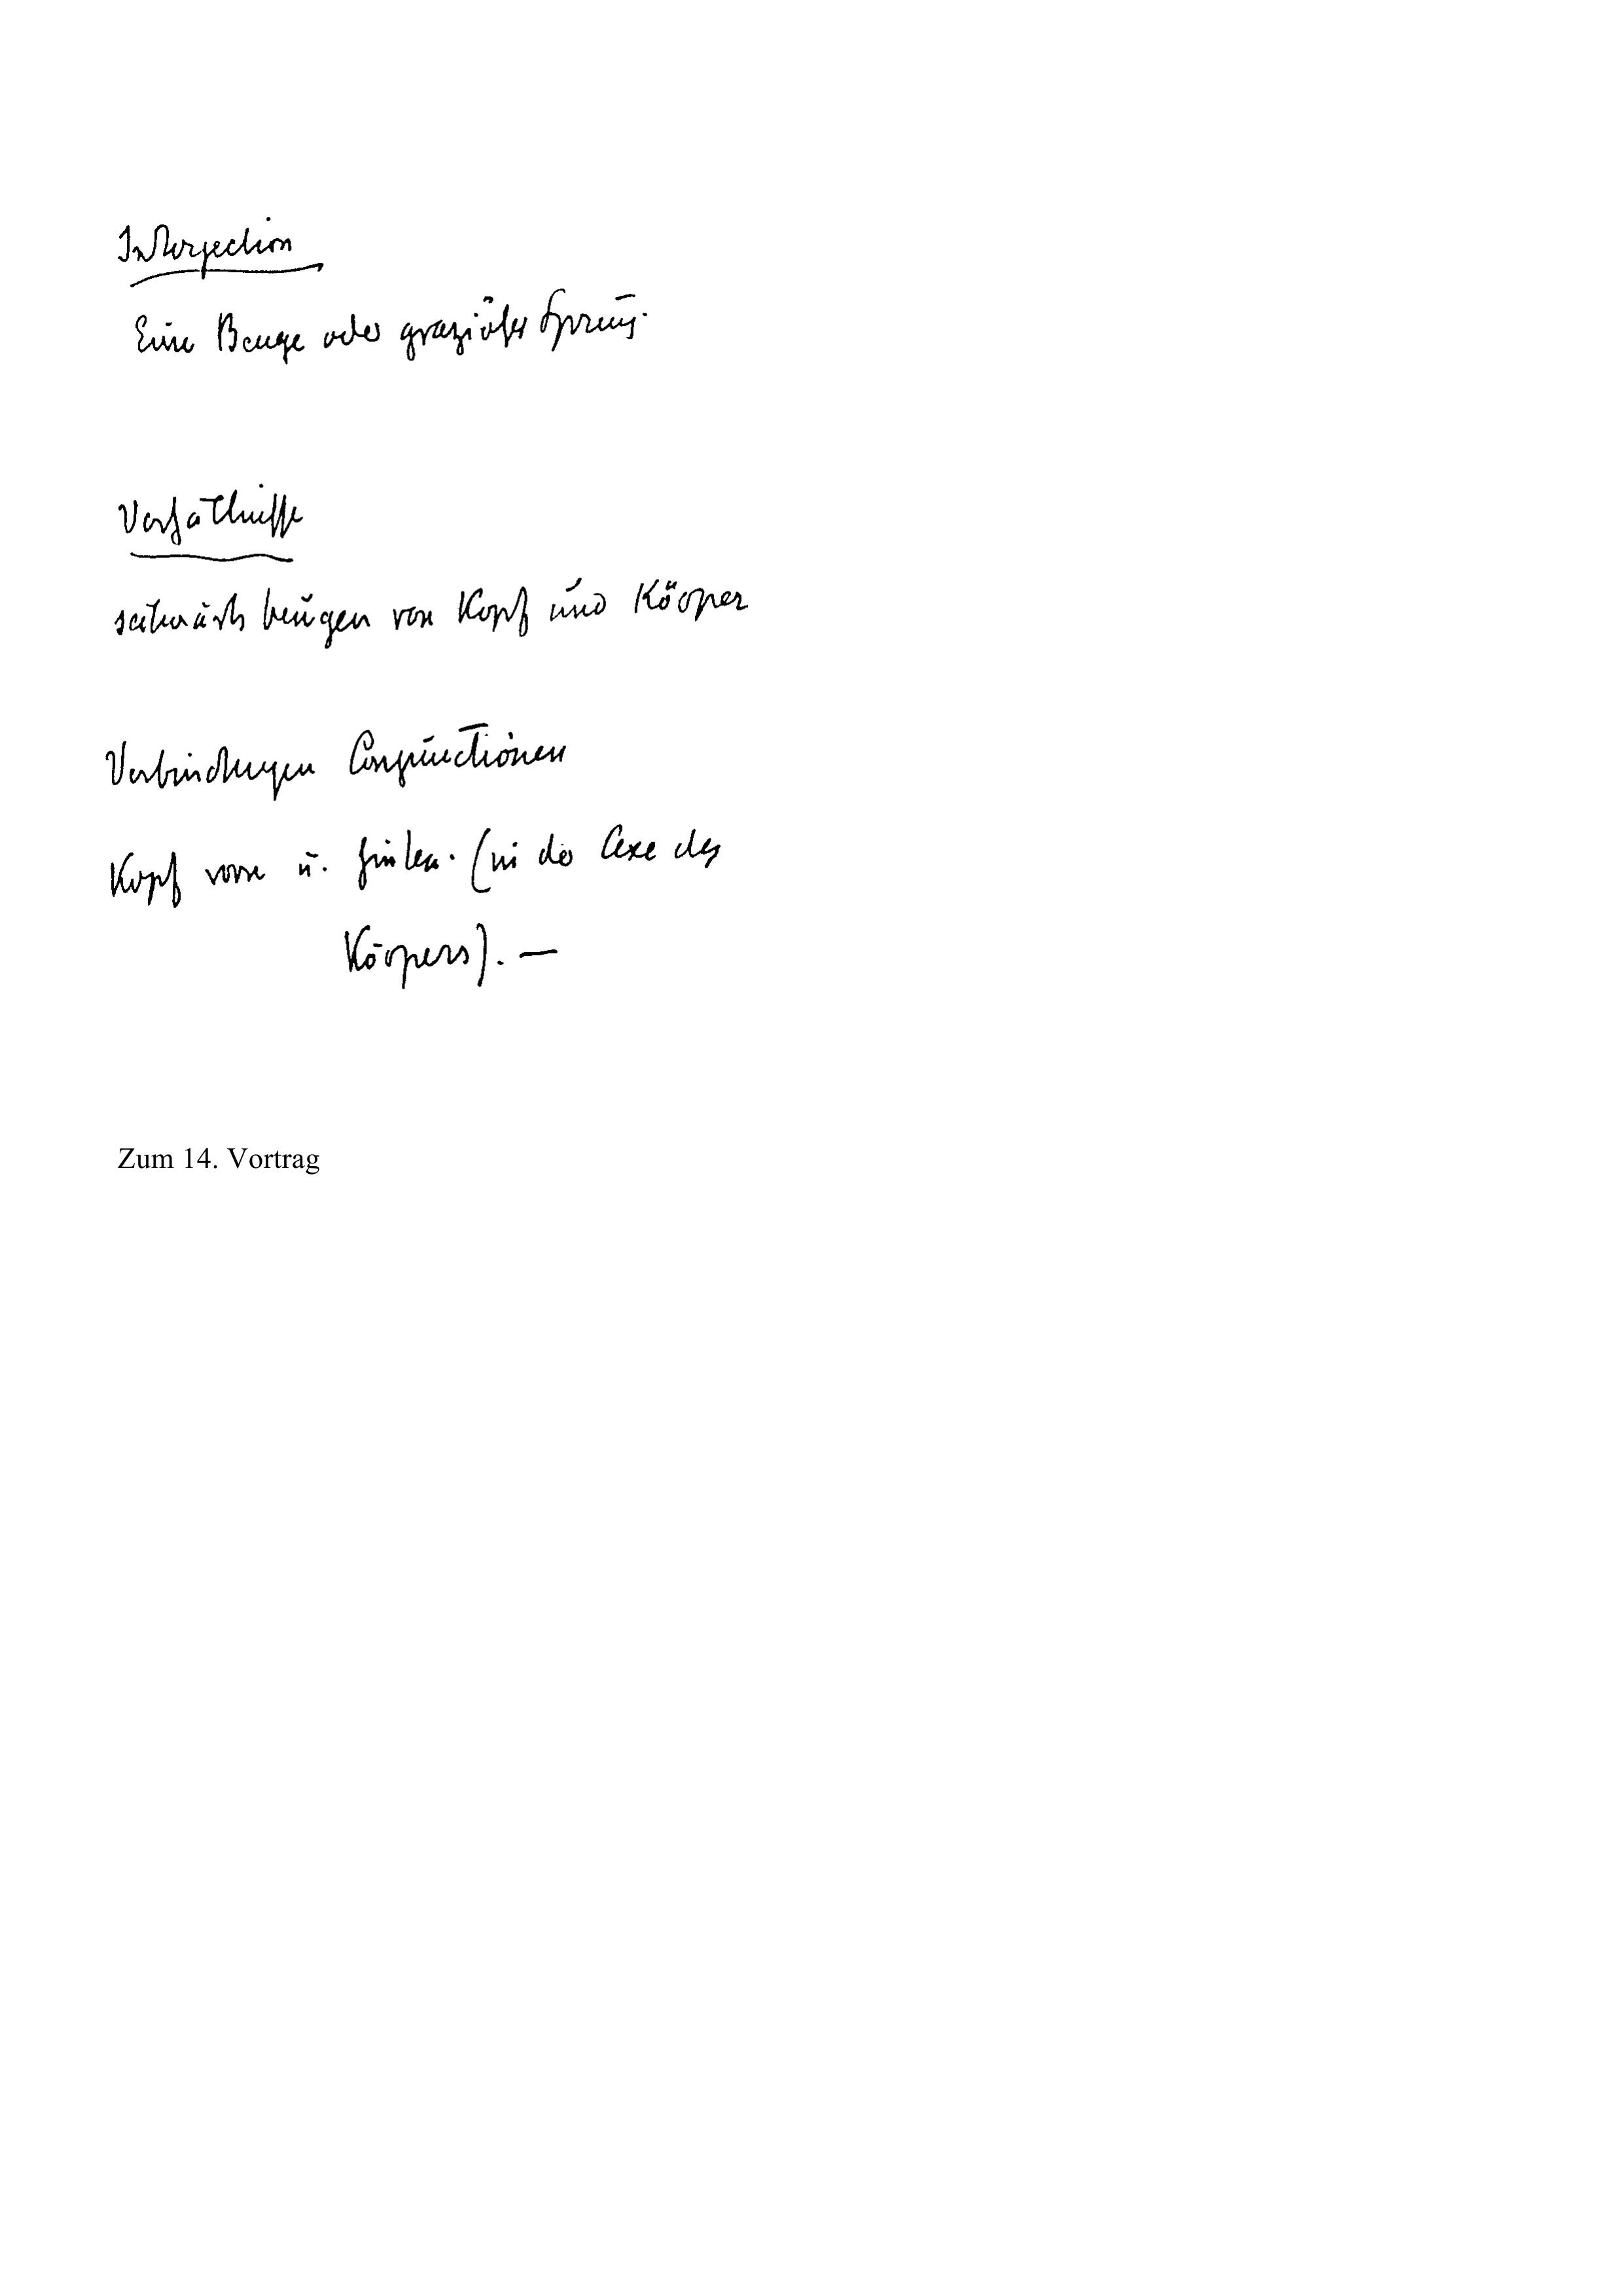 Interjection
Eine Beuge oder graziöser Sprung.
Verhältnisse
seitwärts beugen von Kopf und Körper
Verbindungen Conjunctionen
Kopf vorne u. hinten. (in der Axe des
Körpers). —
Zum 14. Vortrag